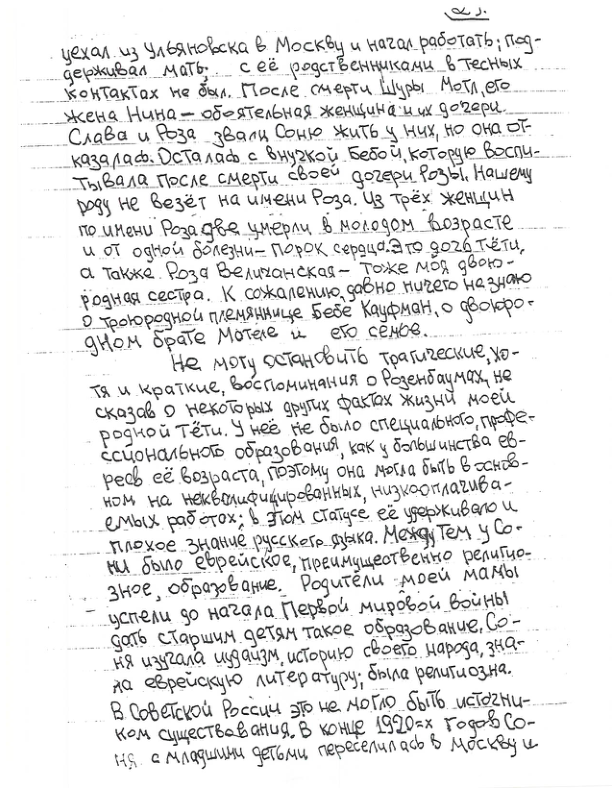 уехал из Ульяновска в Москву и начал работать; под-
держивал мать; с её родственниками в тесных
контактах не был. После смерти Шуры Мотл, его
жена Нина – обоятельная женщина и их дочери
Слава и Роза звали Соню жить у них, но она от-
казалась. Осталась с внучкой Бебой, которую воспи-
тывала после смерти своей дочери Розы. Нашему
роду не везёт на имени Роза. Из трёх женщин
по имени Роза две умерли в молодом возрасте
и от одной болезни – порок сердца. Это дочь тёти,
а также Роза Величанская – тоже моя двою-
родная сестра. К сожалению, давно ничего не знаю
о троюродной племяннице Бебе Кауфман, о двоюро-
дном брате Мотеле и его семье.
Не могу остановить трагические, хо-
тя и краткие, воспоминания о Розенбаумах, не
сказав о некоторых других фактах жизни моей
родной тёти. У неё не было специального, профе-
ссионального образования, как у большинства ев-
реев её возраста, поэтому она могла быть в основ-
ном на неквалифицированных, низкооплачива-
емых работах; в этом статусе её удерживало и
плохое знание русского языка. Между тем у Со-
ни было еврейское, преимущественно религио-
зное, образование. Родители моей мамы
успели до начала Первой мировой войны
дать старшим детям такое образование. Со-
ня изучала иудаизм, историю своего народа, зна-
ла еврейскую литературу; была религиозна.
В Советской России это не могло быть источни-
ком существования. В конце 1920=х годов Со-
ня с младшими детьми переселилась в Москву и